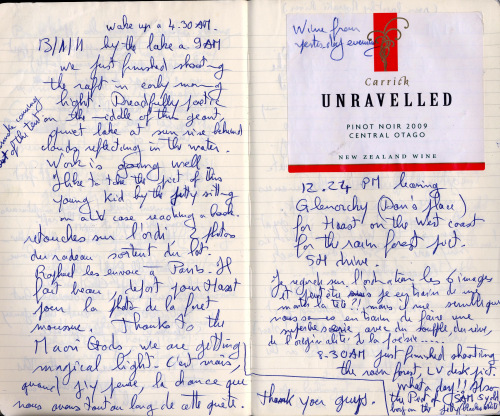 wake up a 4.30 AM.
13/1/11 by the lake a 9AM
we just finished shooting
the raft in early morning
light. Dreadfully poetic
on the middle of this geant
quiet lake at sun rise behind
clouds reflecting in the water.
smoke coming
out of the tent
Work is going well.
I like to take the pict of this
young kid by the jetty sitting
on a LV case reading a book.
retouches sur l'ordi photos
du radeau sortent du lot.
Raphael les envoie a Paris. Il
fait beau, depart pour Haast
pour la photo de la foret
mousse. Thanks to the
Maori Gods we are getting
magical light. C'est vrai,
quand j'y pense, la chance que
nous avons tout au long de cette quête.
Wine from
yesterday evening
Carrick
UNRAVELLED
PINOT NOIR 2009
CENTRAL OTAGO
NEW ZEALAND WINE
12.24 PM leaving
Glenorchy (Dan's place)
for Haast on the West coast
for the rain forest pict.
5H drive.
Je regarde sur l'ordination les 6 images
et peut être suis je en train de me
la tête !! mais il me semble que
nous sommes en train de faire une
superbe serie avec du souffle, du
de l'originalité de la poesie.....
8.30 AM just finished shooting
the rain forest, LV desk pict.
what a day!!! Also
the Pod of SAM
thank you guys.